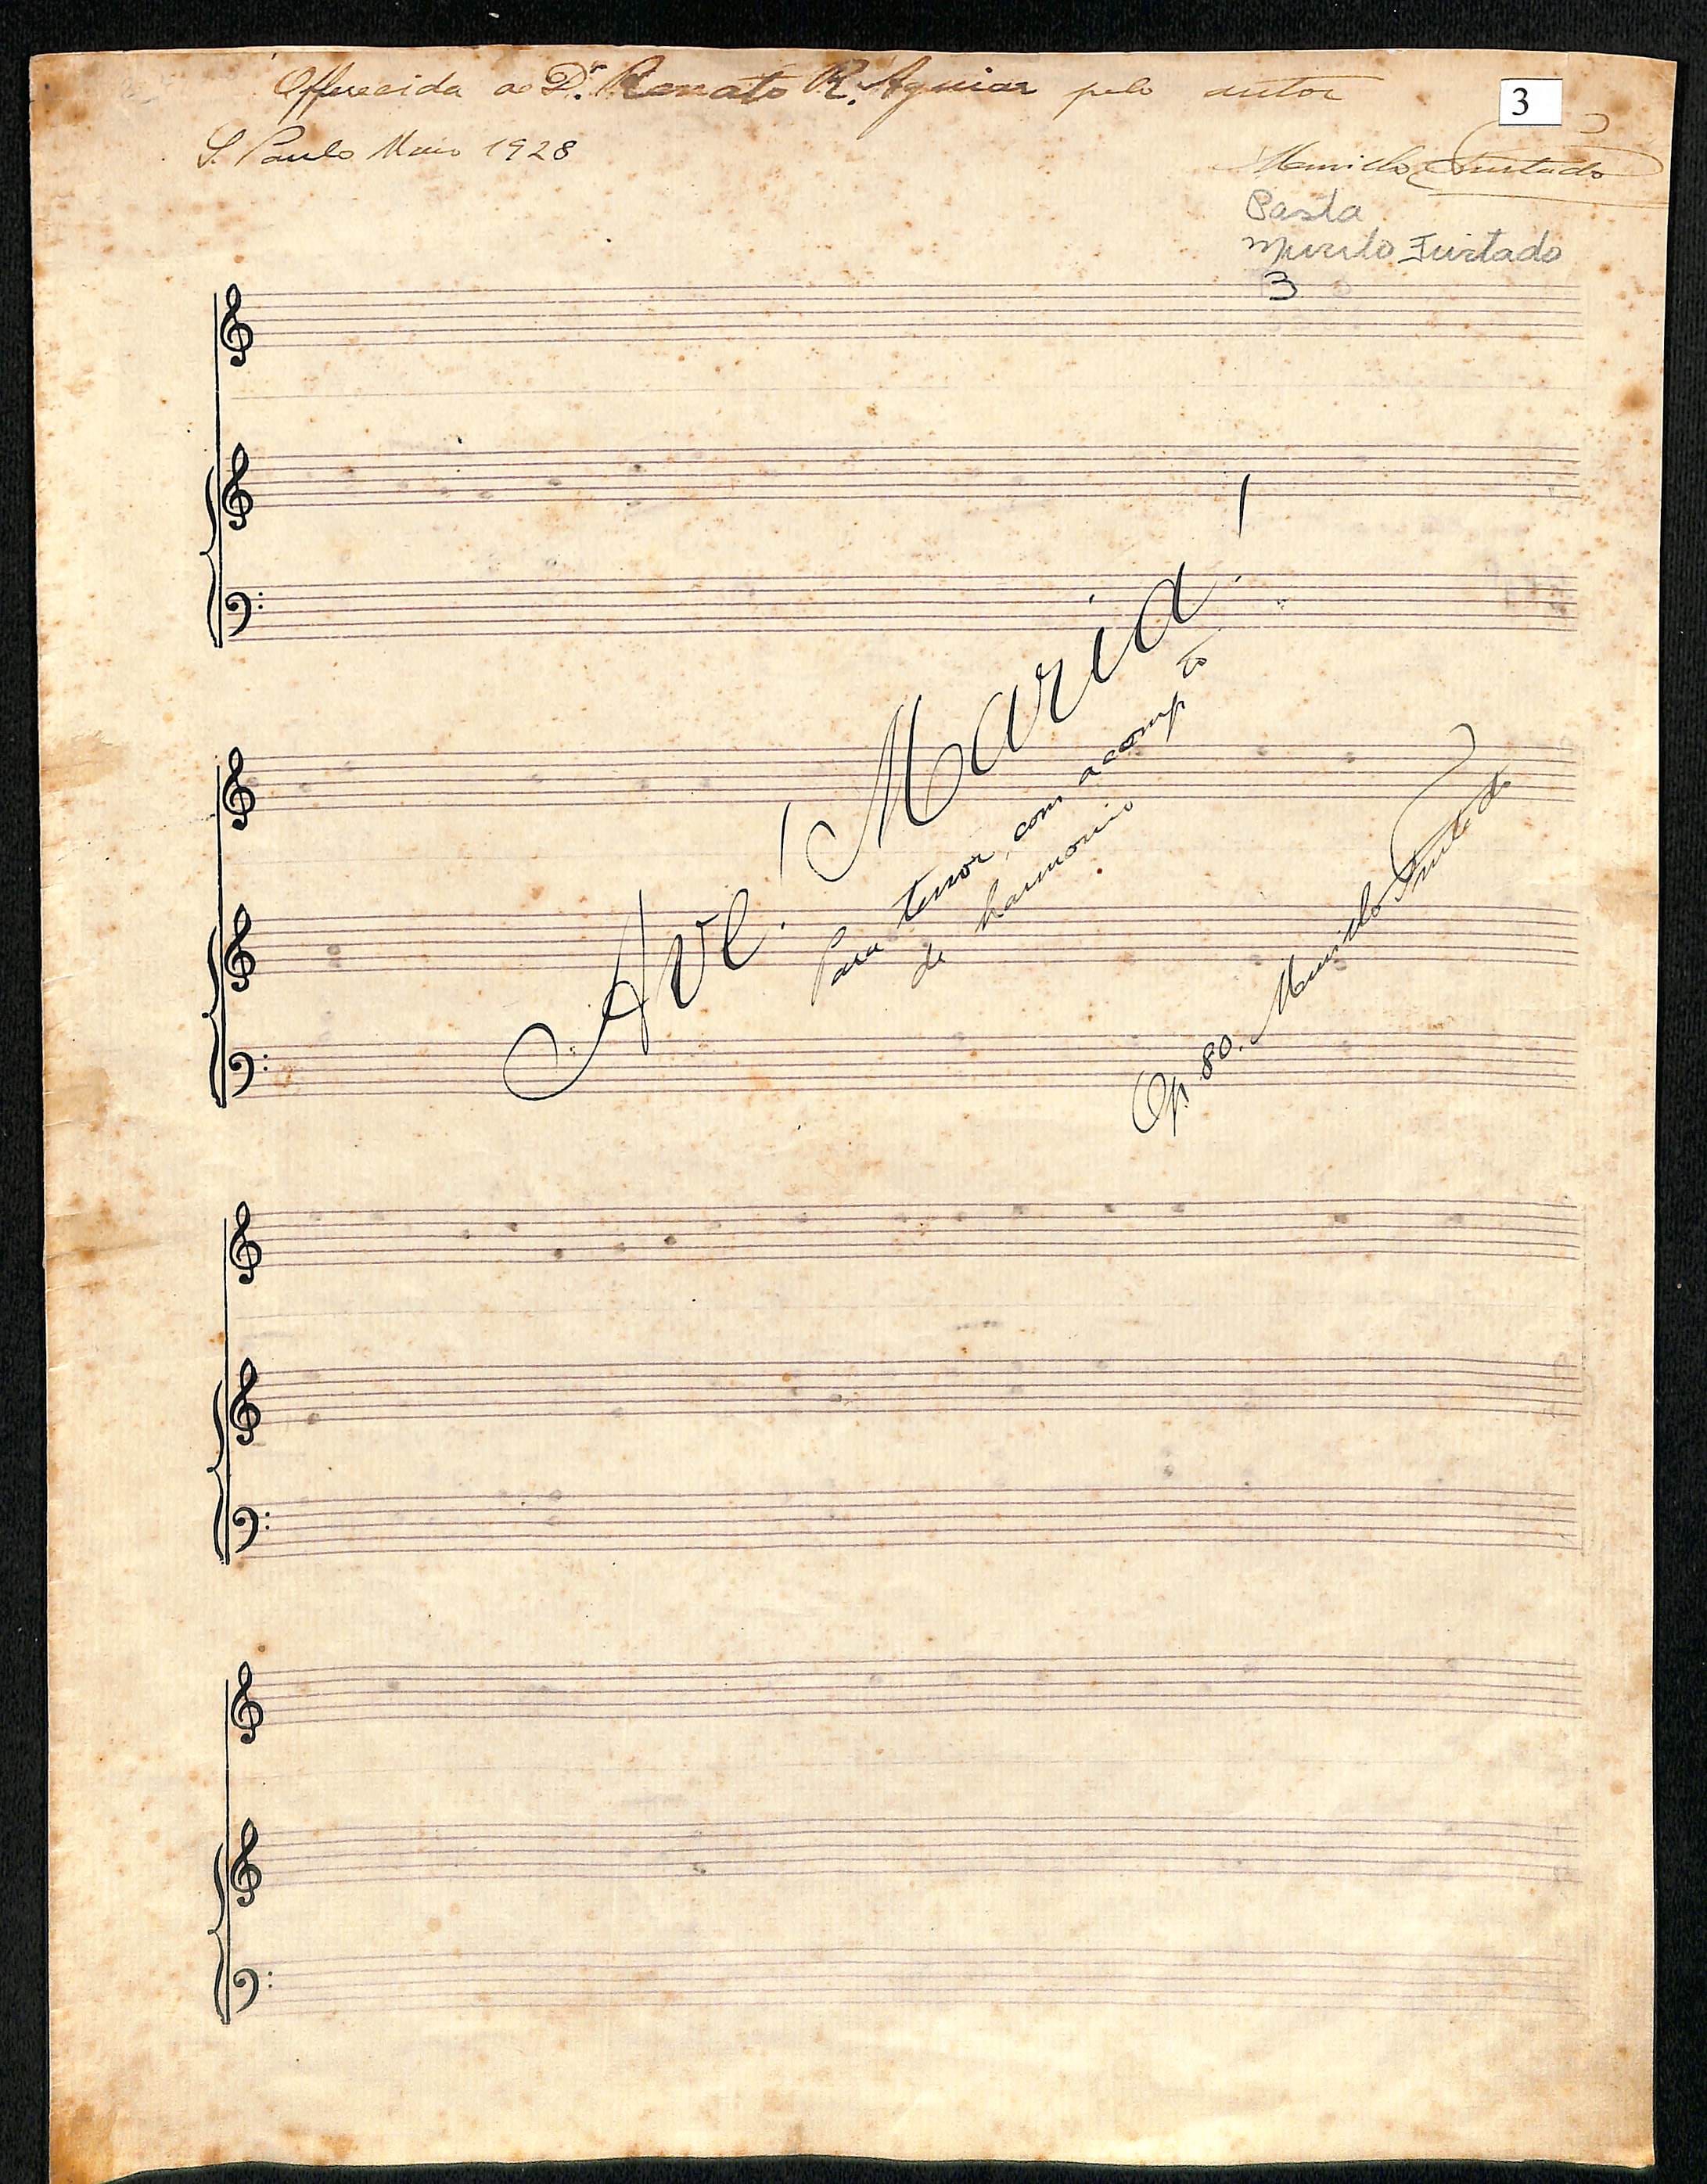 Offerecida ao Dr. Renato R. Aguiar pelo autor
3
S. Paulo Maio 1928
Murillo Furtado
Pasta
Murilo Furtado
3
Ave! Maria!
Para tenor, com acompto
de harmonio
Op. 80. Murillo Furtado